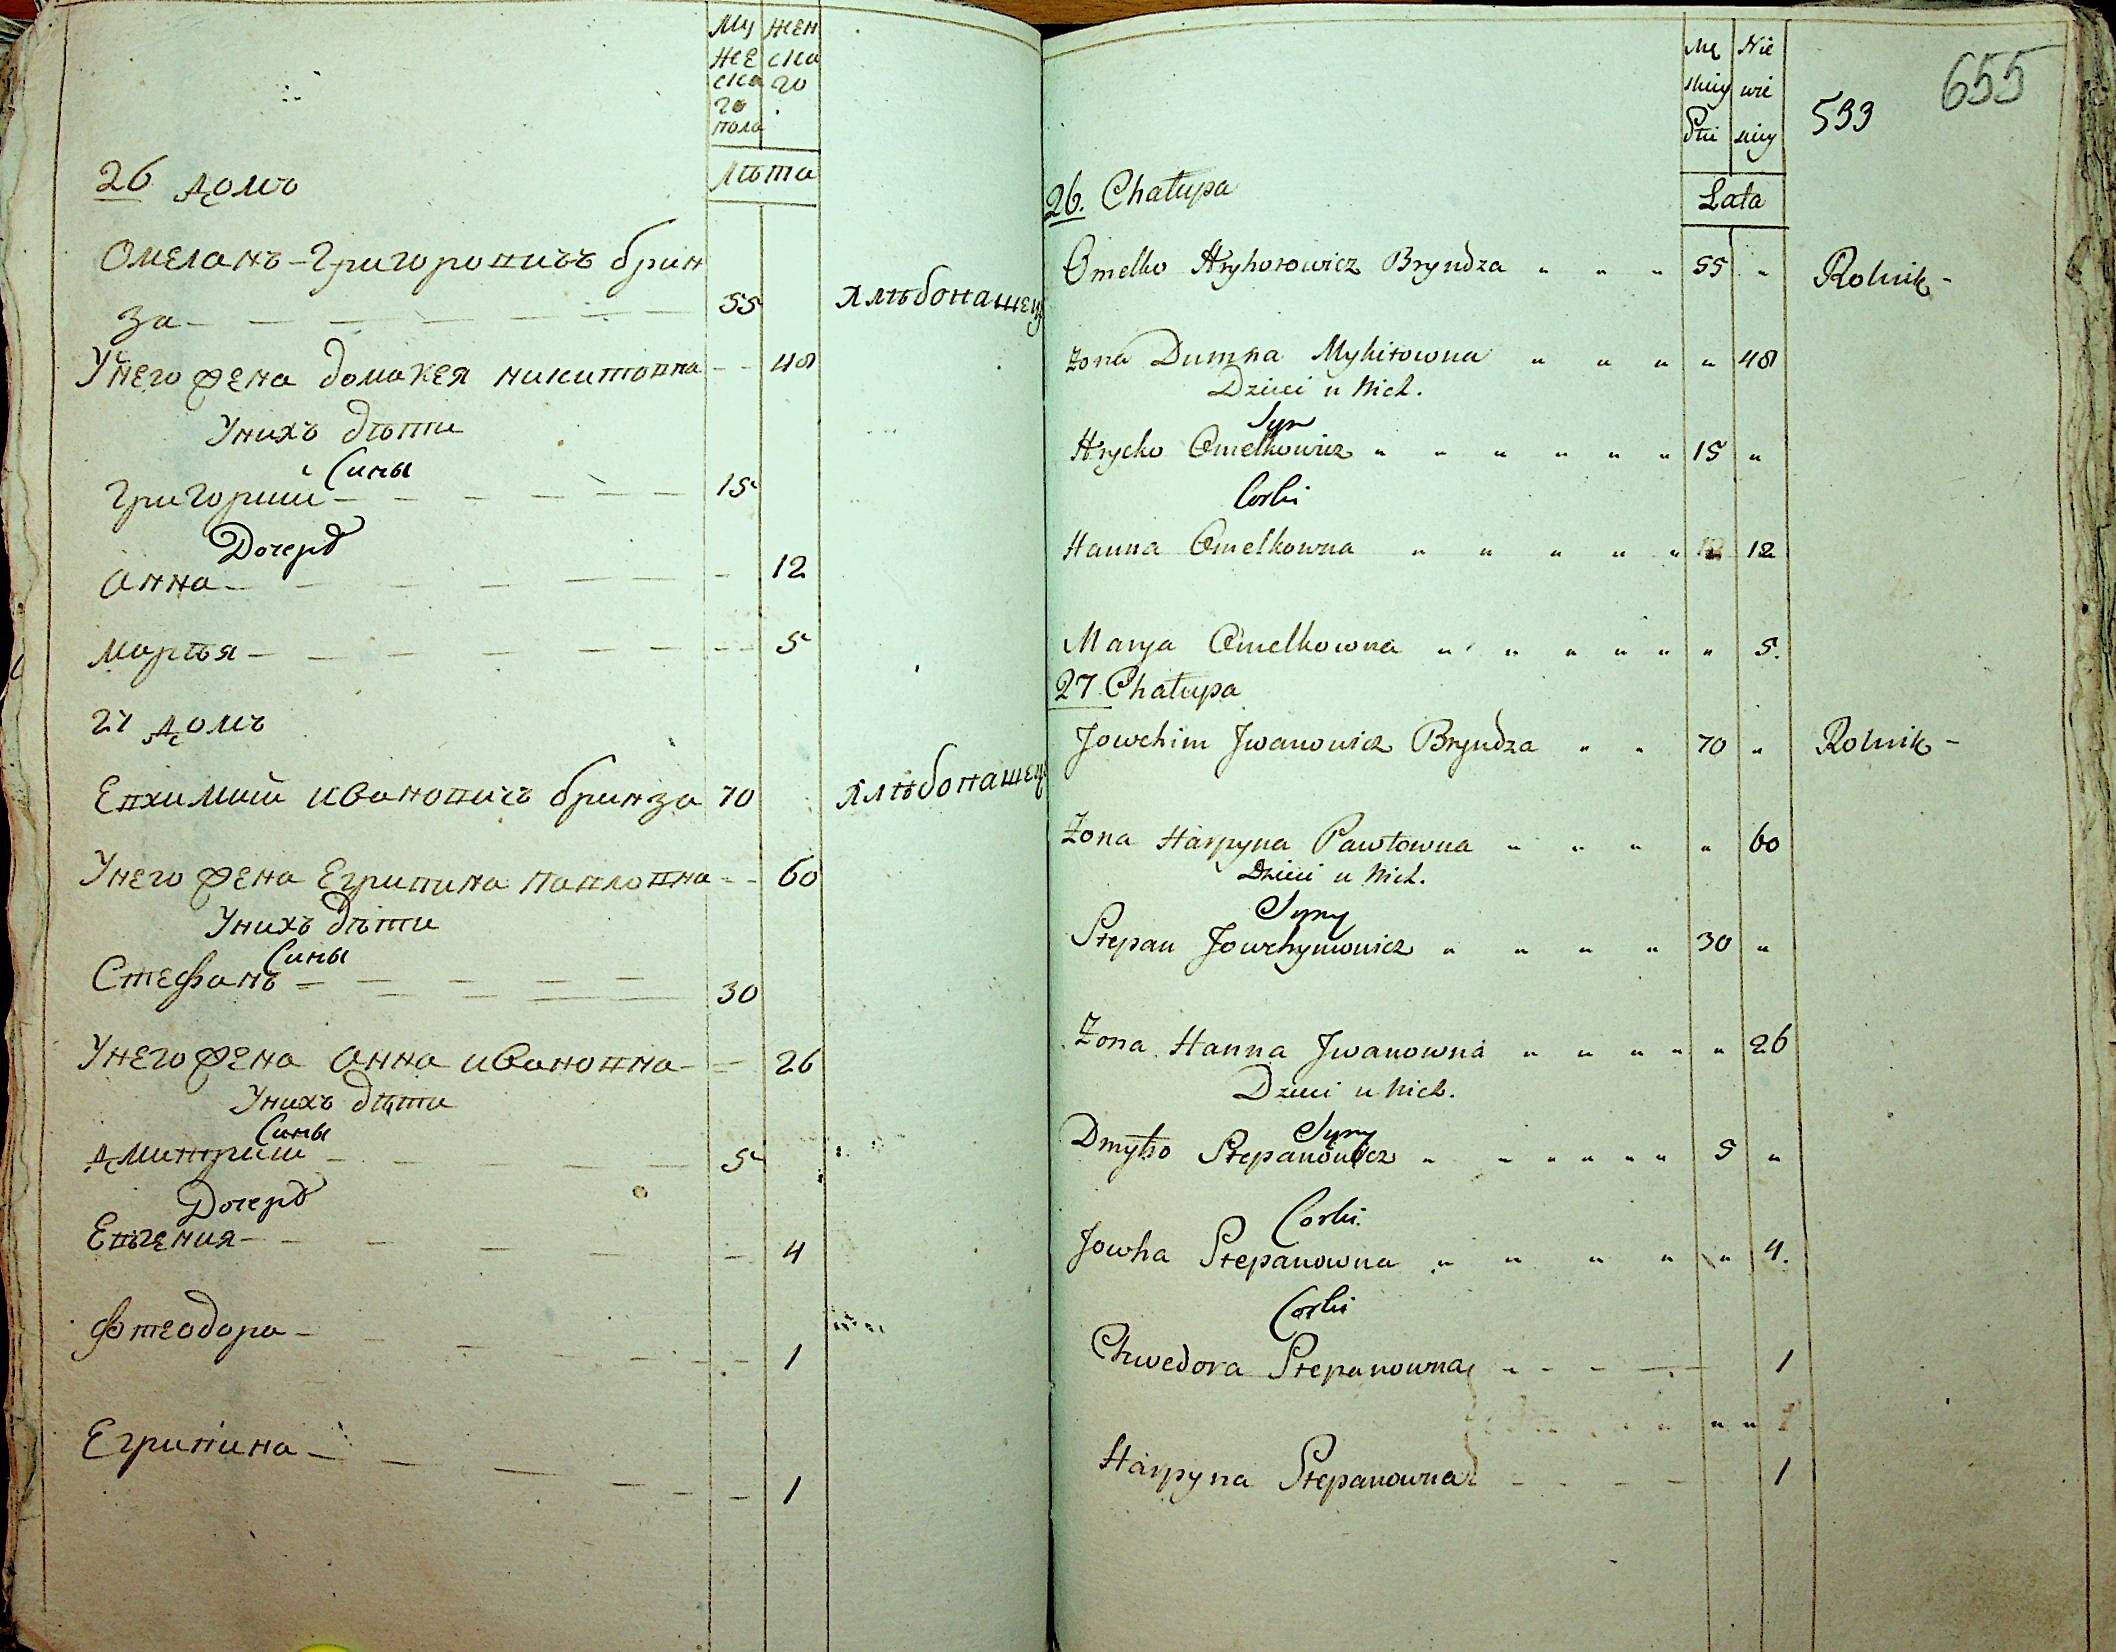 Му
же
ска
го
пола
жен
ска
го
Лѣта
26 домъ
Омеланъ Григоровичъ брин
за 55 Хлѣбопашец
Унего жена домакея никитовна 48
Унихъ дѣти
Сины
Григории 15
Дочерѣ
анна 12
Марья 5
27 домъ
Евхимий ивановичъ бринза 70 Хлѣбопашец
Унего жена Егрипина павловна 60
Унихъ дѣти
Сины
Стефанъ 30
Унего жена анна ивановна 26
Унихъ дѣти
Сины
дмитрии 5
Дочерѣ
Евгения 4
Фтеодора 1
Егрипина 1
Mę
skiey
Płci
Nie
wie
sciey
533
655
Lata
26. Chałupa
Omelko Hryhorowicz Bryndza " " " 55 " Rolnik -
Zona Dumna Mykitowna " " " " 48
Dzieci u Nich.
Syn
Hrycko Omelkowicz " " " " " " 15 "
Corki
Hanna Omelkowna " " " " " 12
Marya Omelkowna " " " " " " 5.
27 Chałupa
Jowchim Jwanowicz Bryndza " " 70 " Rolnik -
Zona Harpyna Pawłowna " " " " 60
Dzieci u Nich.
Syny
Stepan Jowchymowicz " " " " 30 "
Zona Hanna Jwanowna " " " " " 26
Dzieci u Nich.
Syny
Dmytro Stepanowicz " " " " " " 5 "
Corki.
Jowha Stepanowna " " " " " 4.
Corki
Chwedora Stepanowna 1
Harpyna Stepanowna 1